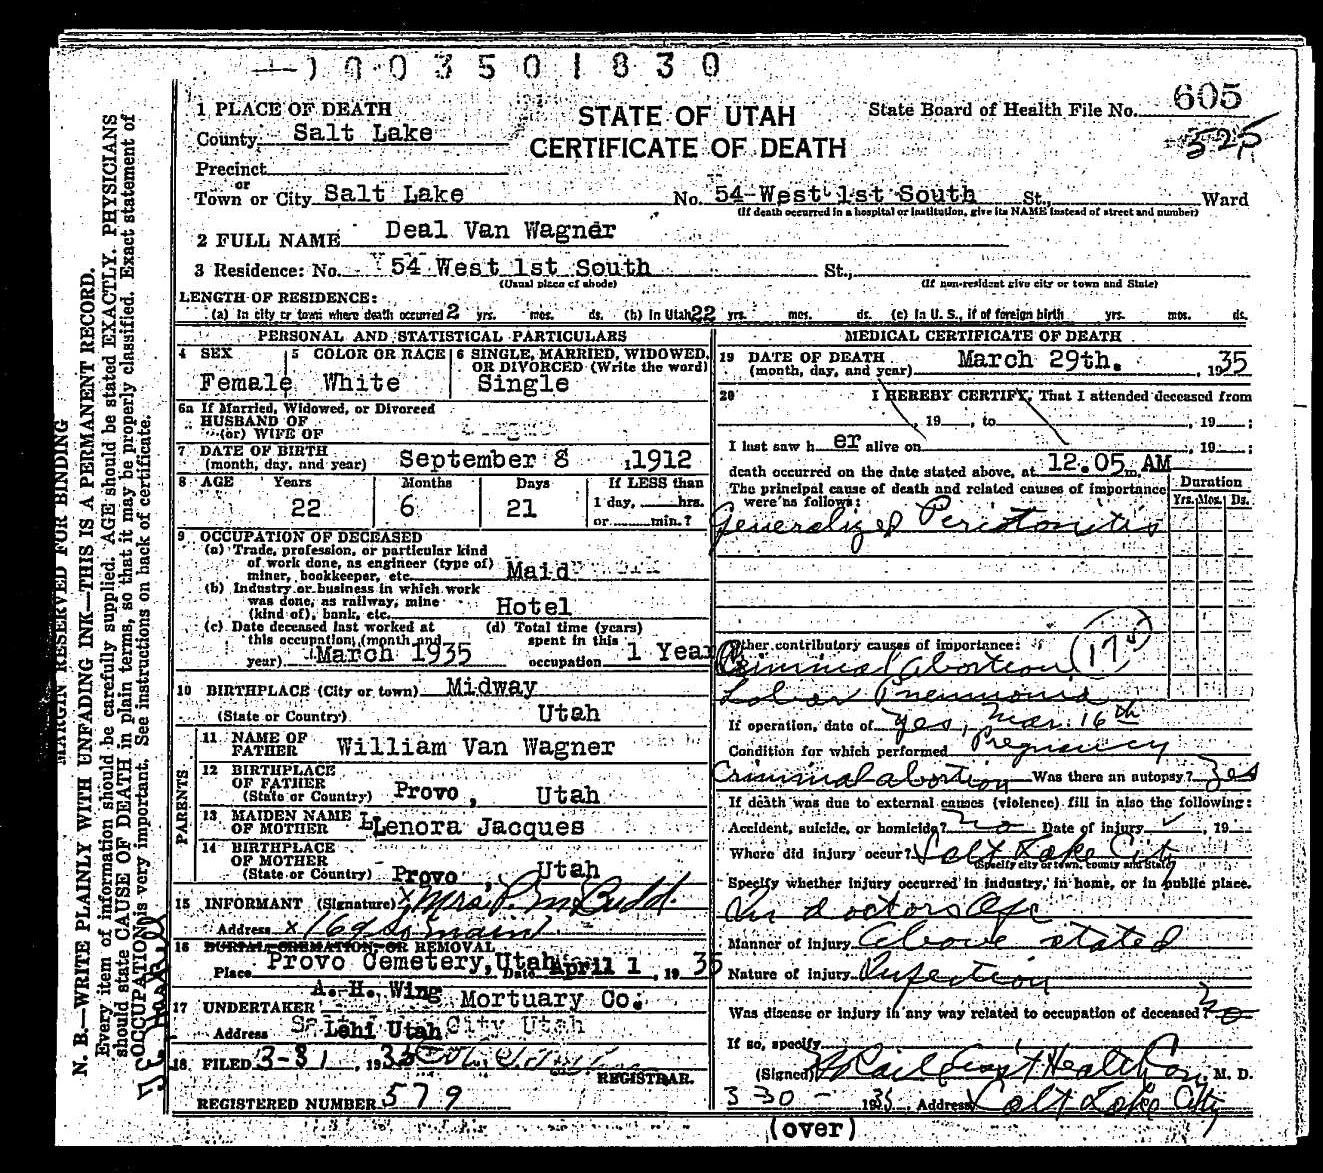 1003501830
1 PLACE OF DEATH
STATE OF UTAH
CERTIFICATE OF DEATH
State Board of Health File No. 605
525
County Salt Lake
Precinct
or
Town or City Salt Lake No. 54-West 1st South St., Ward
(If death occurred in a hospital or institution, give its NAME instead of street and number)
2 FULL NAME Deal Van Wagner
3 Residence: No. 54 West 1st South St.,
(Usual place of abode) (If non-resident give city or town and State)
LENGTH OF RESIDENCE:
(a) In city or town where death occurred 2 yrs. mos. ds. (b) In Utah 22 yrs. mos. ds. (c) In U. S., if of foreign birth yrs. mos. ds.
PERSONAL AND STATISTICAL PARTICULARS
4 SEX 5 COLOR OR RACE 6 SINGLE, MARRIED, WIDOWED, OR DIVORCED (Write the word)
Female White Single
6a If Married, Widowed, or Divorced
HUSBAND OF
(or) WIFE OF
7 DATE OF BIRTH
(month, day, and year) September 8, 1912
8 AGE Years Months Days If LESS than
1 day, hrs.
22 6 21 or min.?
9 OCCUPATION OF DECEASED
(a) Trade, profession, or particular kind
of work done, as engineer (type of)
miner, bookkeeper, etc. Maid
(b) Industry or business in which work
was done, as railway, mine
(kind of), bank, etc. Hotel
(c) Date deceased last worked at (d) Total time (years)
this occupation (month and spent in this
year) March 1935 occupation 1 Year
10 BIRTHPLACE (City or town) Midway
(State or Country) Utah
PARENTS
11 NAME OF
FATHER William Van Wagner
12 BIRTHPLACE
OF FATHER
(State or Country) Provo, Utah
13 MAIDEN NAME
OF MOTHER Lenora Jacques
14 BIRTHPLACE
OF MOTHER
(State or Country) Provo, Utah
15 INFORMANT (Signature) x Mrs. P. M. Budd.
Address x 169 So Main
16 BURIAL CREMATION OR REMOVAL
Place Provo Cemetery, Utah Date April 1, 1935
A. H. Wing
17 UNDERTAKER Mortuary Co.
Address Lehi Utah City Utah
18 FILED 3-31, 1935
REGISTRAR.
REGISTERED NUMBER 579
MEDICAL CERTIFICATE OF DEATH
19 DATE OF DEATH
(month, day, and year) March 29th., 1935
20 I HEREBY CERTIFY, That I attended deceased from
, 19 , to , 19 ;
I last saw h er alive on , 19 ;
death occurred on the date stated above, at 12.05 m. AM
The principal cause of death and related causes of importance
were as follows:
Duration
Yrs. Mos. Ds.
Generalized Peritonitis
Other contributory causes of importance:
Criminal abortion
Lobar Pneumonia
If operation, date of Yes, Mar. 16th
Condition for which performed Pregnancy
Criminal abortion Was there an autopsy? Yes
If death was due to external causes (violence) fill in also the following:
Accident, suicide, or homicide? No Date of injury , 19
Where did injury occur? Salt Lake City
(Specify city or town, county and State)
Specify whether injury occurred in industry, in home, or in public place.
In doctors Ofc
Manner of injury Above stated
Nature of injury Infection
Was disease or injury in any way related to occupation of deceased? No
If so, specify
(Signed) M. D.
3 30 - 1935, Address Salt Lake City
(over)
MARGIN RESERVED FOR BINDING
N. B.—WRITE PLAINLY WITH UNFADING INK—THIS IS A PERMANENT RECORD.
Every item of information should be carefully supplied. AGE should be stated EXACTLY. PHYSICIANS
should state CAUSE OF DEATH in plain terms, so that it may be properly classified. Exact statement of
OCCUPATION is very important. See instructions on back of certificate.